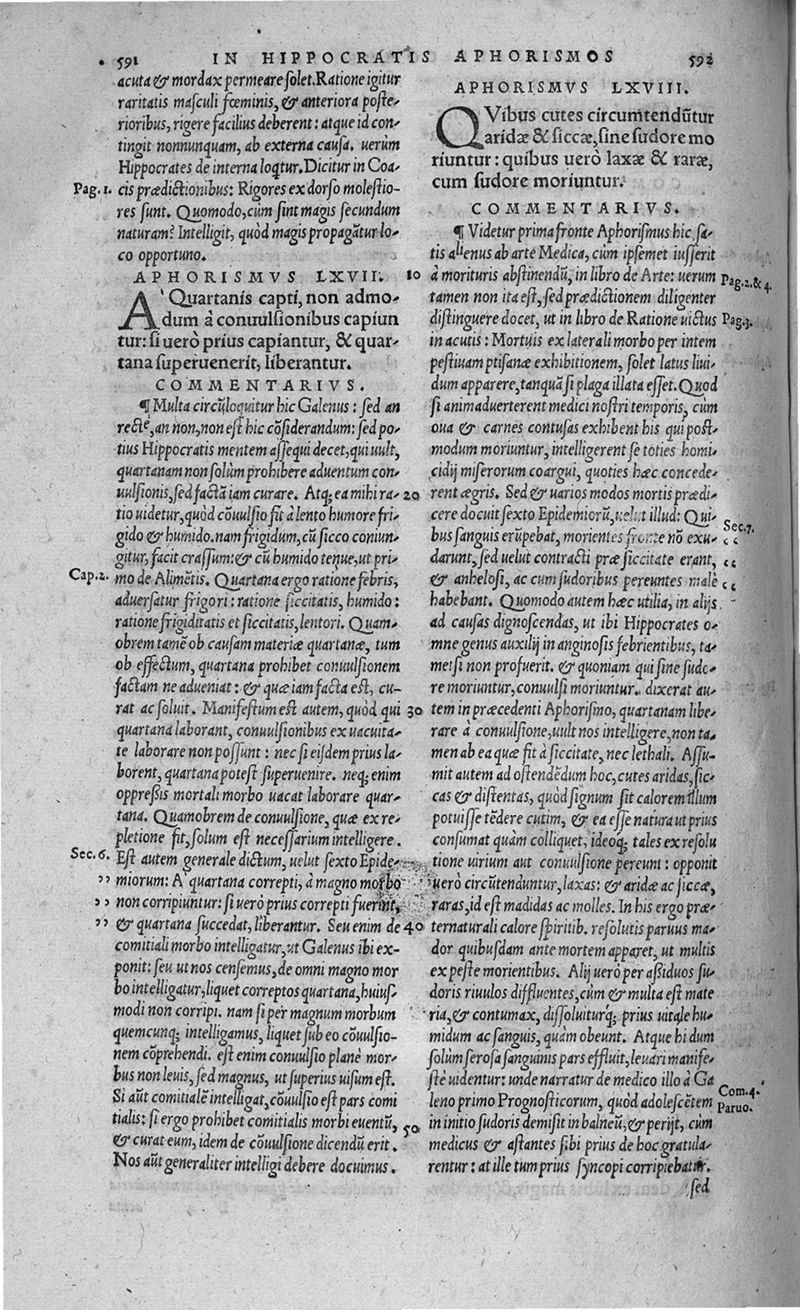 591 IN HIPPOCRATIS APHORISMOS 592
acuta & mordax permeare solet. Ratione igitur
raritatis masculi fœminis, & anteriora poste-
rioribus, rigere facilius deberent: atque id con-
tingit nonnunquam, ab externa causa. uerùm
Hippocrates de interna loqtur. Dicitur in Coa-
Pag. 1. cis prædictionibus: Rigores ex dorso molestio-
res sunt. Quomodo, cùm sint magis secundum
naturam? Intelligit, quòd magis propagãtur lo-
co opportuno.
APHORISMVS LXVII. 10
A' Quartanis capti, non admo-
dum à conuulsionibus capiun
tur: si uerò prius capiantur, & quar-
tana superuenerit, liberantur.
COMMENTARIVS.
¶ Multa circũloquitur hic Galenus: sed an
rectè, an non, non est hic cõsiderandum: sed po-
tius Hippocratis mentem assequi decet, qui uult,
quartanam non solùm prohibere aduentum con-
uulsionis, sed factã iam curare. Atq; ea mihi ra- 20
tio uidetur, quòd cõuulsio fit à lento humore fri-
gido & humido. nam frigidum, cũ sicco coniun-
gitur, facit crassum: & cũ humido tenue, ut pri-
Cap. 2. mo de Alimẽtis. Quartana ergo ratione febris,
aduersatur frigori: ratione siccitatis, humido:
ratione frigiditatis et siccitatis, lentori. Quam-
obrem tamẽ ob causam materiæ quartanæ, tum
ob effectum, quartana prohibet conuulsionem
factam ne adueniat: & quæ iam facta est, cu-
rat ac soluit. Manifestum est autem, quòd qui 30
quartana laborant, conuulsionibus ex uacuita-
te laborare non possunt: nec si eisdem prius la-
borent, quartana potest superuenire. neq; enim
oppreßis mortali morbo uacat laborare quar-
tana. Quamobrem de conuulsione, quæ ex re-
pletione fit, solum est necessarium intelligere.
Sec. 6. Est autem generale dictum, uelut sexto Epide-
,, miorum: A quartana correpti, à magno morbo
,, non corripiuntur: si uerò prius correpti fuerint,
,, & quartana succedat, liberantur. Seu enim de 40
comitiali morbo intelligatur, ut Galenus ibi ex-
ponit: seu ut nos censemus, de omni magno mor
bo intelligatur, liquet correptos quartana, huius-
modi non corripi. nam si per magnum morbum
quemcunq; intelligamus, liquet sub eo cõuulsio-
nem cõprehendi. est enim conuulsio planè mor-
bus non leuis, sed magnus, ut superius uisum est.
Si aũt comitialẽ intelligat, cõuulsio est pars comi
tialis: si ergo prohibet comitialis morbi euentũ,
& curat eum, idem de cõuulsione dicendũ erit. 50
Nos aũt generaliter intelligi debere docuimus.
APHORISMVS LXVIII.
QVibus cutes circumtendũtur
aridæ & siccæ, sine sudore mo
riuntur: quibus uerò laxæ & raræ,
cum sudore moriuntur.
COMMENTARIVS.
¶ Videtur prima fronte Aphorismus hic, sa-
tis alienus ab arte Medica, cùm ipsemet iusserit
à morituris abstinendũ, in libro de Arte: uerum Pag. 2. & 4.
tamen non ita est, sed prædictionem diligenter
distinguere docet, ut in libro de Ratione uictus Pag. 3.
in acutis: Mortuis ex laterali morbo per intem
pestiuam ptisanæ exhibitionem, solet latus liui-
dum apparere, tanquã si plaga illata esset. Quod
si animaduerterent medici nostri temporis, cùm
oua & carnes contusas exhibent his qui post-
modum moriuntur, intelligerent se toties homi-
cidij miserorum coargui, quoties hæc concede-
rent ægris. Sed & uarios modos mortis prædi-
cere docuit sexto Epidemiorũ, uelut illud: Qui- Sec. 7.
bus sanguis erũpebat, morientes fronte nõ exu- ‹‹
darunt, sed uelut contracti præ siccitate erant, ‹‹
& anhelosi, ac cum sudoribus pereuntes malè ‹‹
habebant. Quomodo autem hæc utilia, in alijs
ad causas dignoscendas, ut ibi Hippocrates o-
mne genus auxilij in anginosis febrientibus, ta-
metsi non profuerit. & quoniam qui sine sudo-
re moriuntur, conuulsi moriuntur. dixerat au-
tem in præcedenti Aphorismo, quartanam libe-
rare à conuulsione, uult nos intelligere, non ta-
men ab ea quæ fit à siccitate, nec lethali. Assu-
mit autem ad ostendẽdum hoc, cutes aridas, sic-
cas & distentas, quòd signum sit calorem illum
potuisse tẽdere cutim, & ea esse natura ut prius
consumat quàm colliquet, ideoq; tales ex resolu
tione uirium aut conuulsione pereunt: opponit
uerò circũtenduntur, laxas: & aridæ ac siccæ,
raras, id est madidas ac molles. In his ergo præ-
ternaturali calore spiritib. resolutis paruus ma-
dor quibusdam ante mortem apparet, ut multis
ex peste morientibus. Alij uerò per aßiduos su-
doris riuulos diffluentes, cùm & multa est mate
ria, & contumax, dissoluiturq; prius uitale hu-
midum ac sanguis, quàm obeunt. Atque hi dum
solùm serosa sanguinis pars effluit, leuari manife-
stè uidentur: unde narratur de medico illo à Ga Com. 4.
leno primo Prognosticorum, quòd adolescẽtem Paruo.
in initio sudoris demisit in balneũ, & perijt, cùm
medicus & astantes sibi prius de hoc gratula-
rentur: at ille tum prius syncopi corripiebatur.
sed